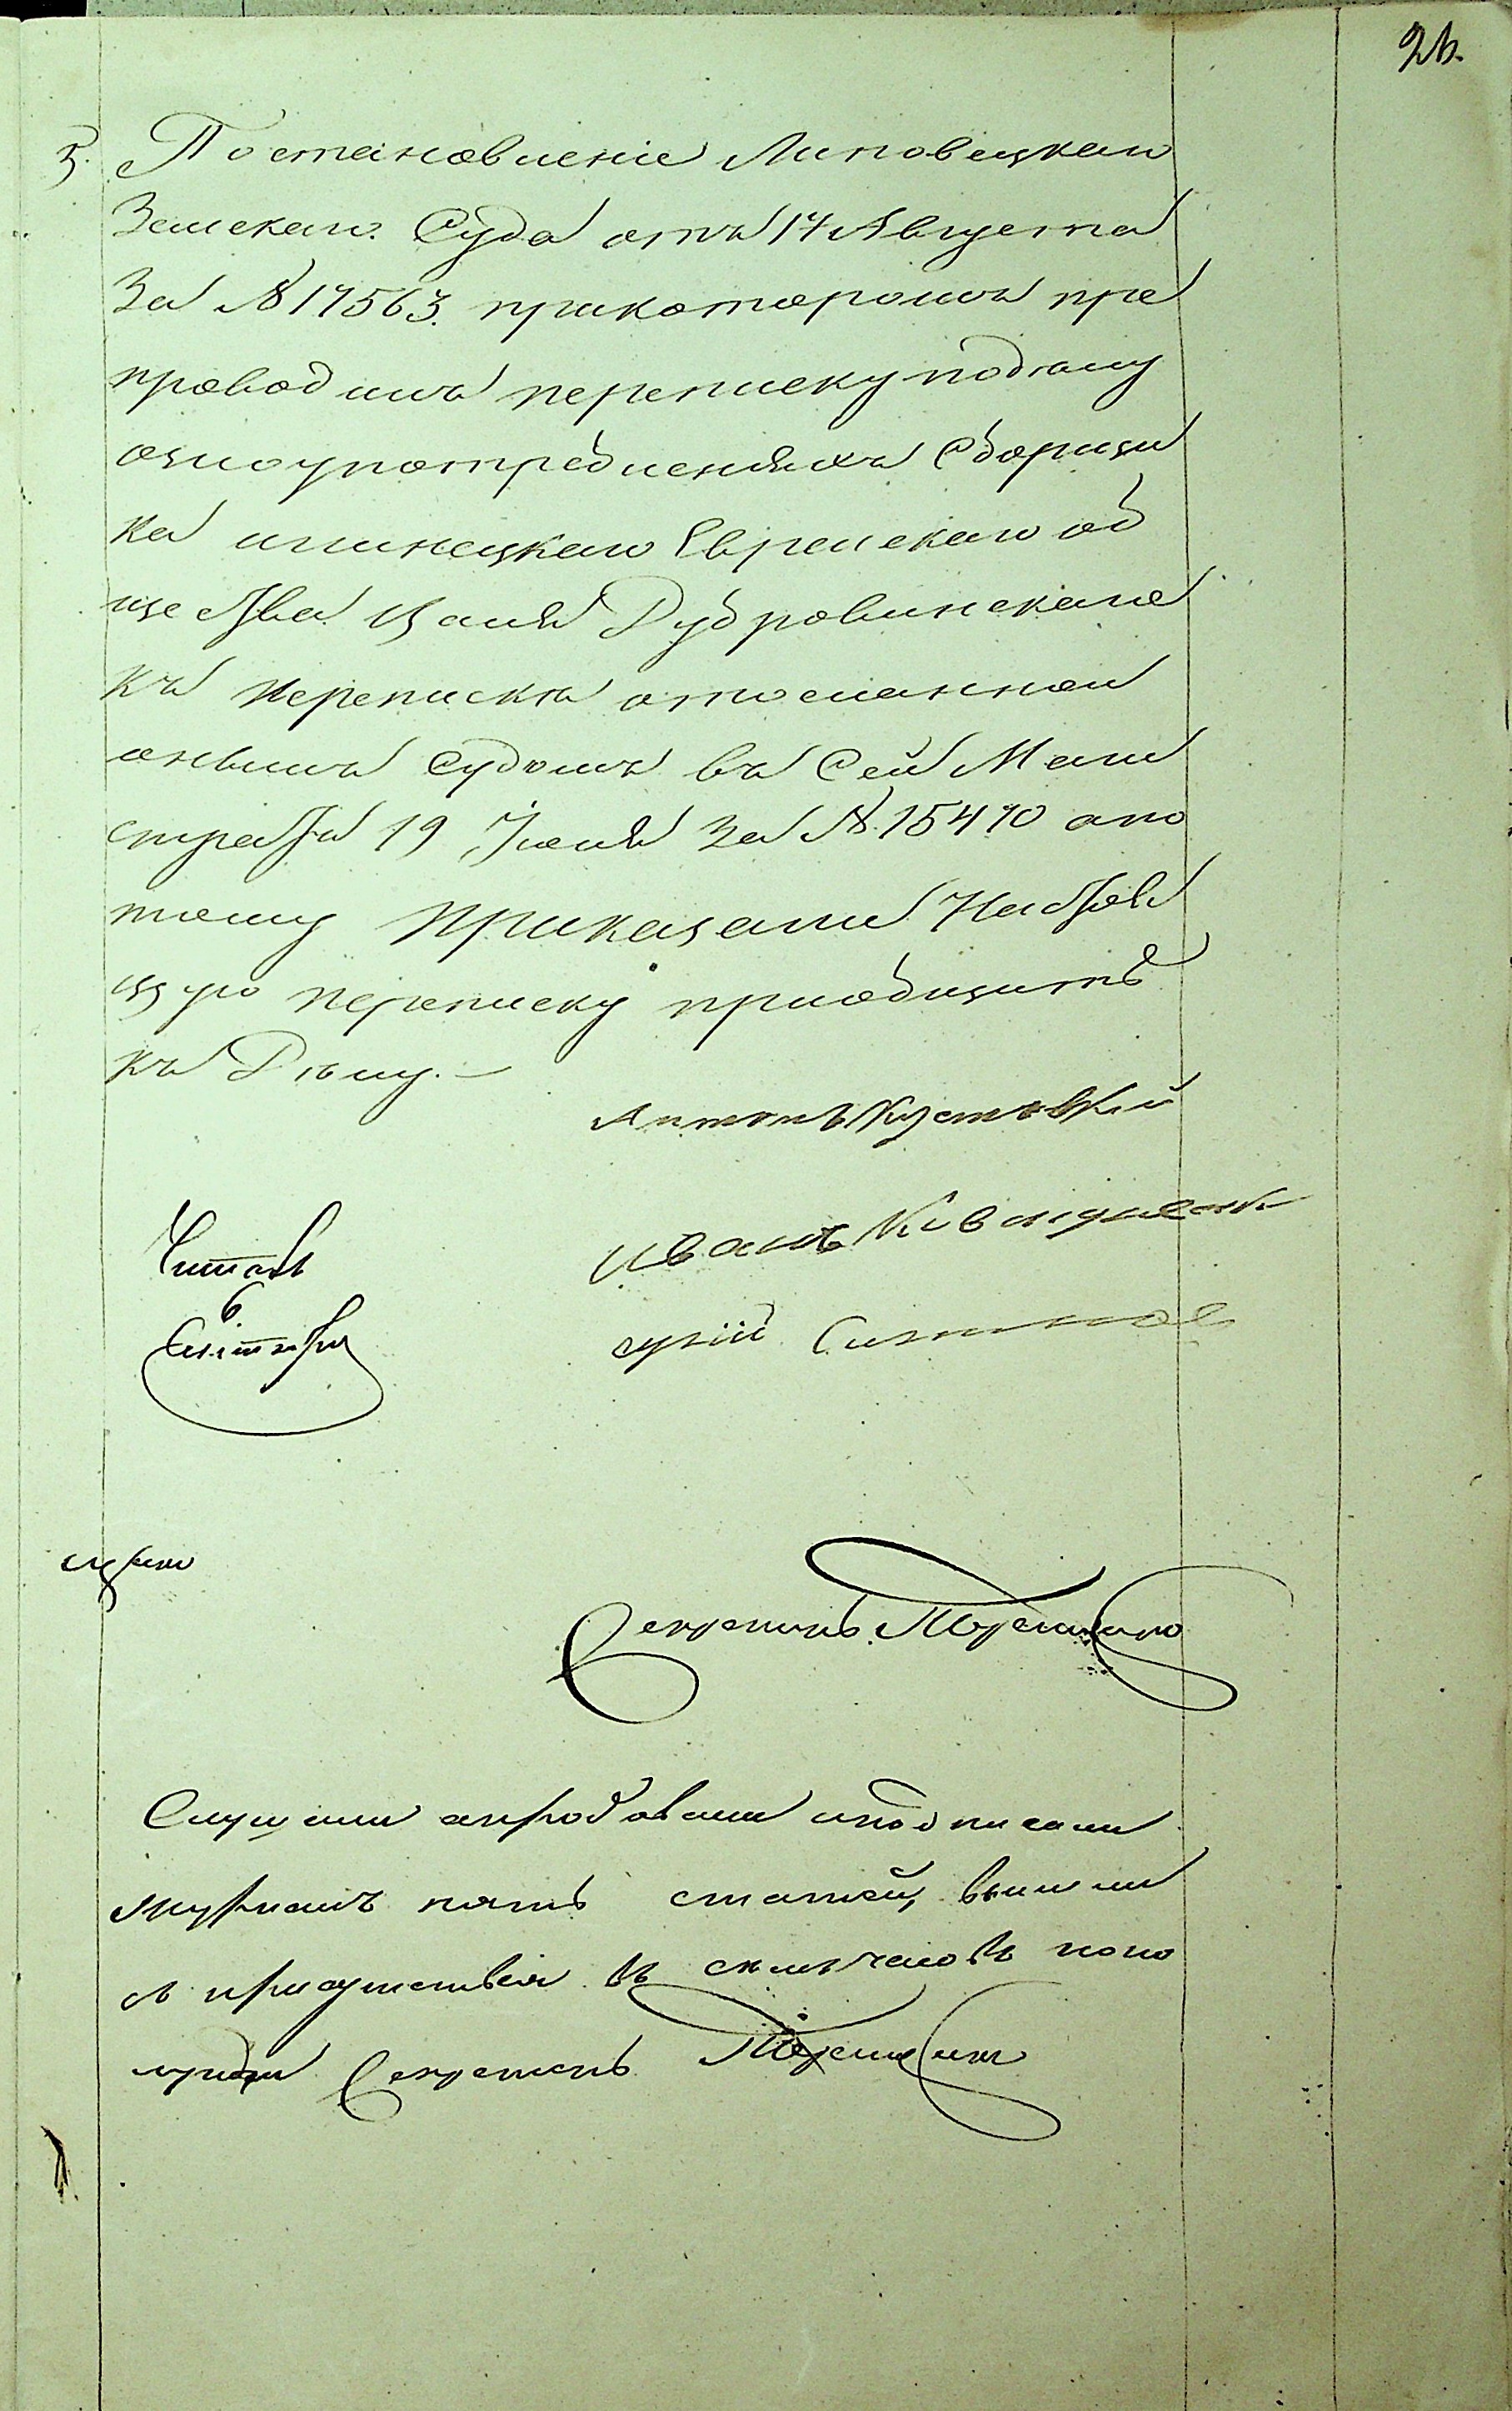 26.
5. Постановленіе Липовецкаго
Земскаго Суда отъ 17 Августа
За № 17563. прикоторомъ пре
проводилъ переписку подѣлу
озлоупотребленіяхъ Сборщи
ка илинецкаго Еврейскаго об
щества Цаля Дубровинскаго
къ перепискѣ отосланной
онымъ Судомъ въ Сей Маги
стратъ 19 Іюля За №. 15470 апо
тому Приказали Настоя
щую переписку пріобщить
къ Дѣлу. —
Антонъ Кустовскій
Читалъ
Иванъ
6
Сентября
Секретарь
Слушали апробовали иподписали
журналъ пять статей, вышли
съ присутствія въ часовъ попо
лудни Секретарь